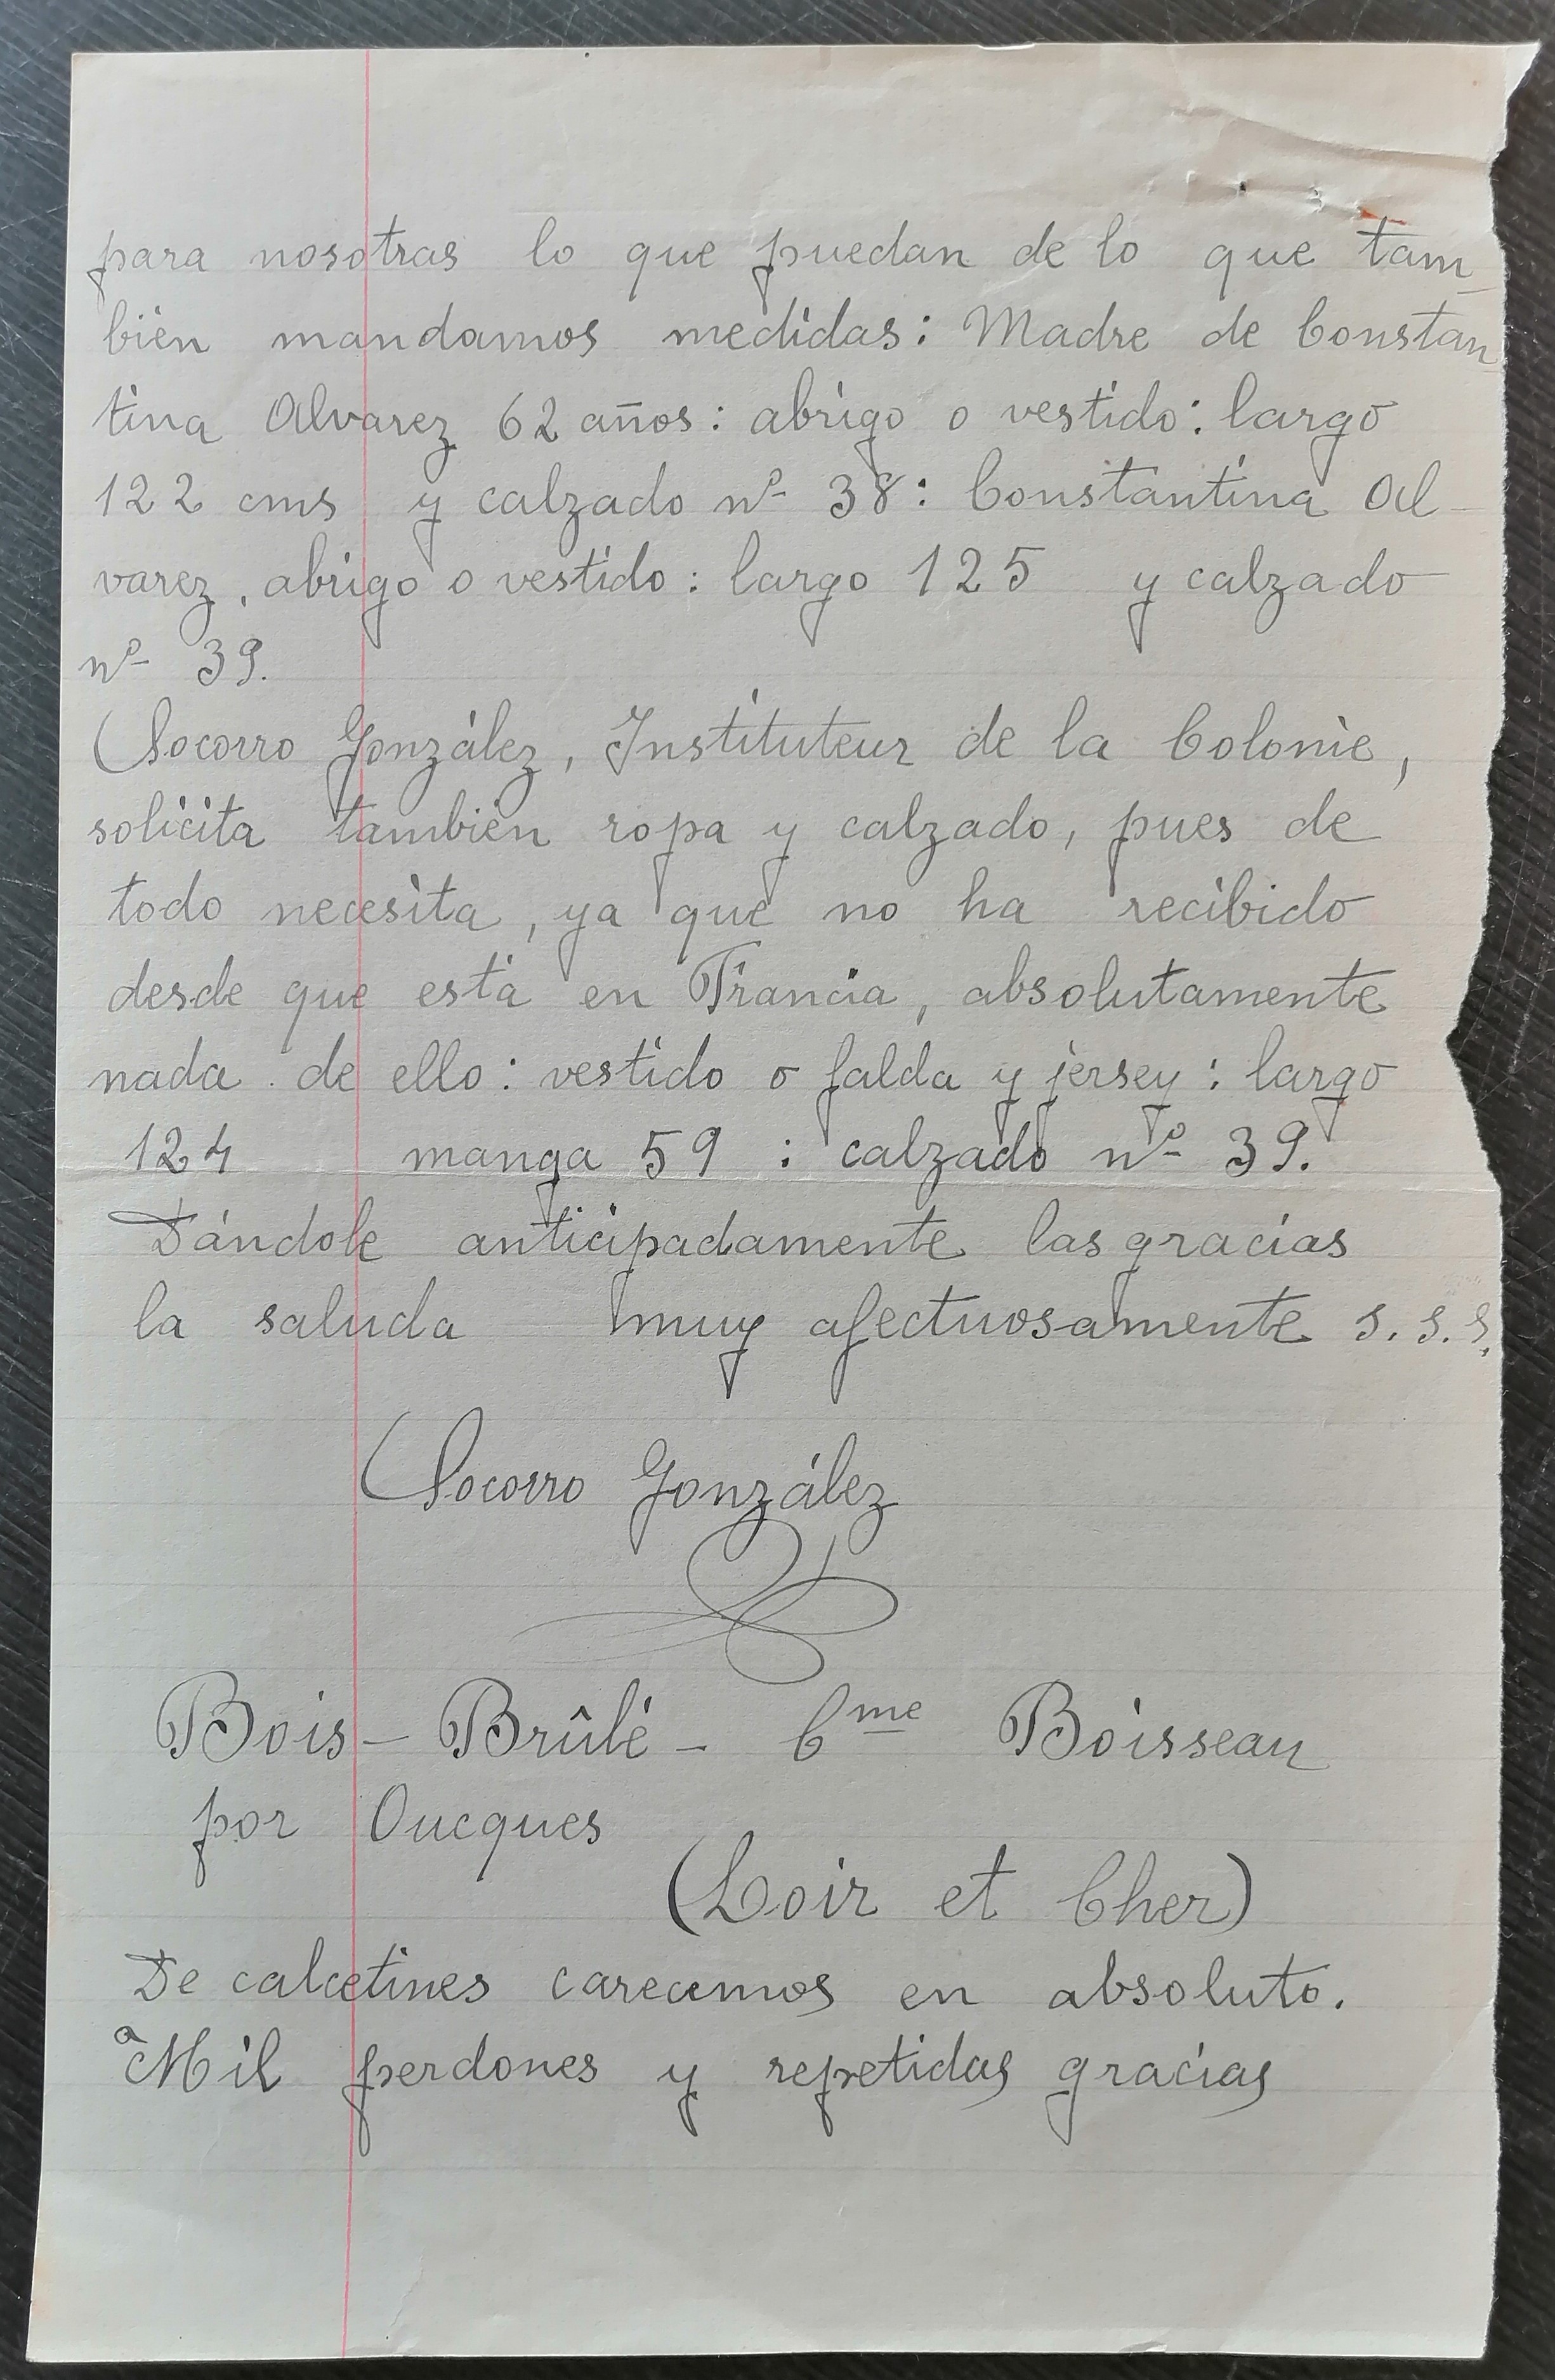 para nosotras lo que puedan de lo que tam-
bién mandamos medidas: Madre de Constan
tina Alvarez 62 años: abrigo o vestido: largo
122 cms y calzado nº 38: Constantina Al-
varez, abrigo o vestido: largo 125 y calzado
nº 39.
Socorro González, Instituteur de la Colonie,
solicita también ropa y calzado, pues de
todo necesita, ya que no ha recibido
desde que está en Francia, absolutamente
nada de ello: vestido o falda y jersey: largo
124 manga 59 : calzado nº 39.
Dándole anticipadamente las gracias
la saluda muy afectuosamente s.s.s.
Socorro González
Bois-Brûlé - Cme Boisseau
por Oucques
(Loir et Cher)
De calcetines carecemos en absoluto.
Mil perdones y repetidas gracias